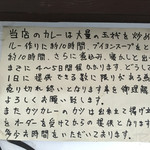 当店のカレーは大量の玉ねぎを炒め
ルー作りに約10時間、ブイヨンスープをとる
に約10時間、さらに煮込み、寝かしと出
までに4〜5日程かかります。どうして
1日に提供できる数に限りがある為
売り切れ終いとなります事を御理解
よろしくお願い致します。
また カツカレーのカツは
オーダーを受けてからの
多少お時間をいただいております。